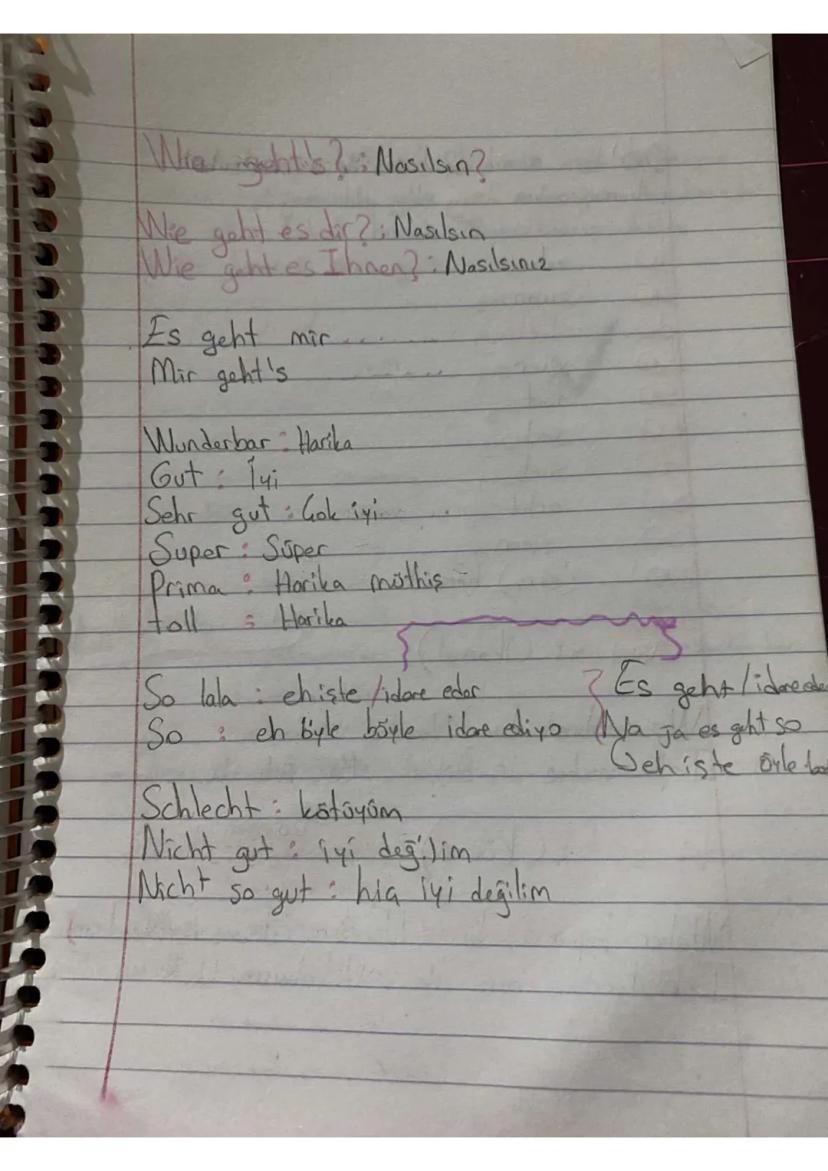 Wie geht's? : Nasılsın?
Wie geht es dir? : Nasılsın
Wie geht es Ihnen? : Nasılsınız
Es geht mir ..........
Mir geht's ..........
Wunderbar : Harika
Gut : İyi
Sehr gut : Çok iyi
Super : Süper
Prima : Harika müthiş
toll : Harika
So lala : eh işte /idare eder
So : eh böyle böyle idare ediyo
Es geht /idare ede
Na ja es geht so
eh işte öyle
Schlecht : kötüyüm
Nicht gut : iyi değilim
Nicht so gut : hiç iyi değilim